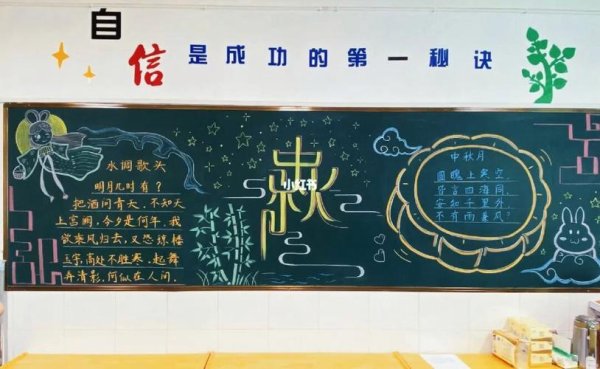 自信是成功的第一秘诀
水调歌头
明月几时有？
把酒问青天，不知天
上宫阙，今夕是何年，我
欲乘风归去，又恐琼楼
玉宇，高处不胜寒，起舞
弄清影，何似在人间。
中秋
小红书
中秋月
圆魄上寒空，
皆言四海同，
安知千里外，
不有雨兼风？